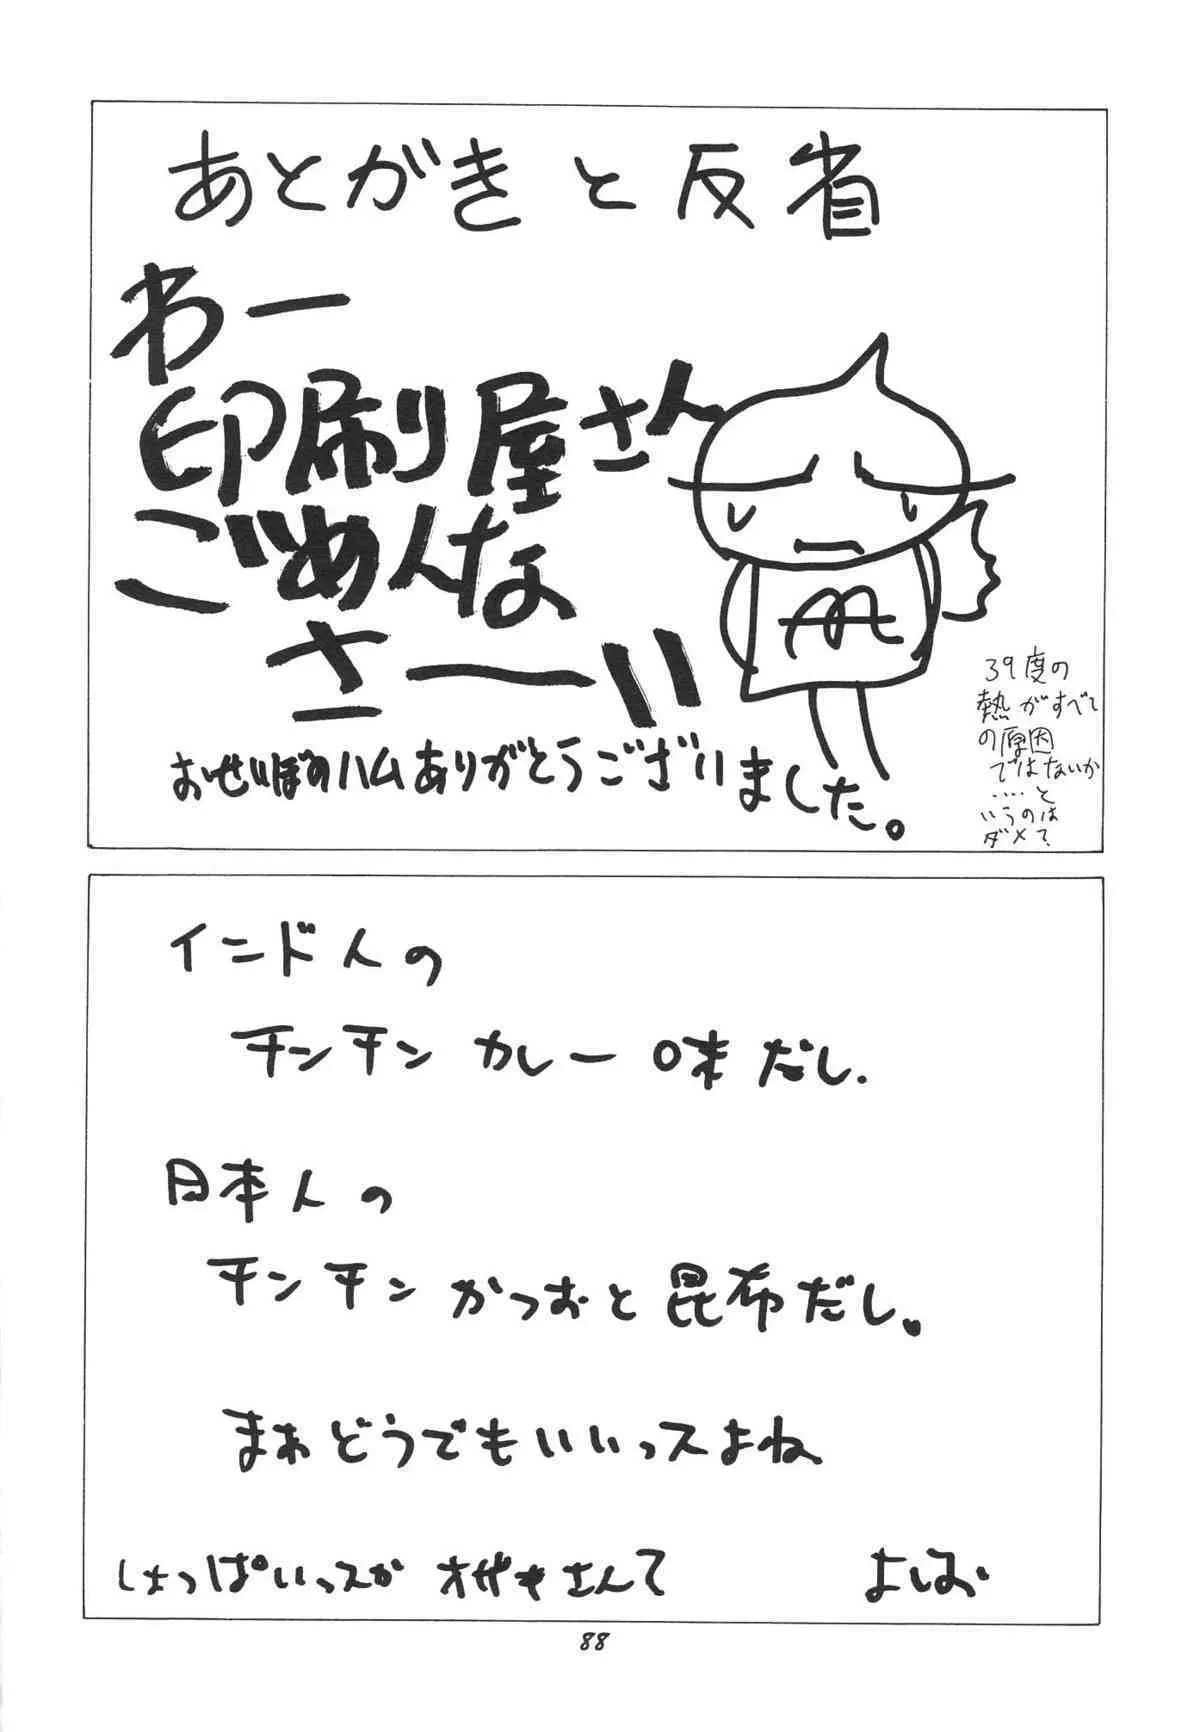 あとがきと反省
わー
印刷屋さん
ごめんな
さーい
おせいぼのハムありがとうございました。
39度の
熱がすべて
の原因
ではないか
‥‥と
いうのは
ダメで、
インド人の
チンチンカレー味だし.
日本人の
チンチンかつおと昆布だし。
まぁどうでもいいっスよね
しょっぱいっスか オザキさんて
よしお
88